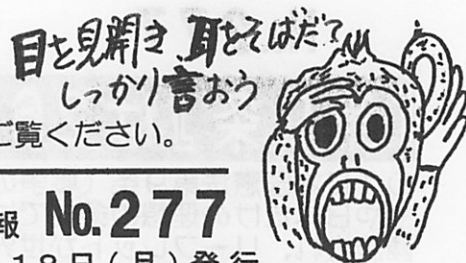 目を見開き 耳をそばだて
しっかり言おう
ご覧ください。
報 No.277
18日(月)発行